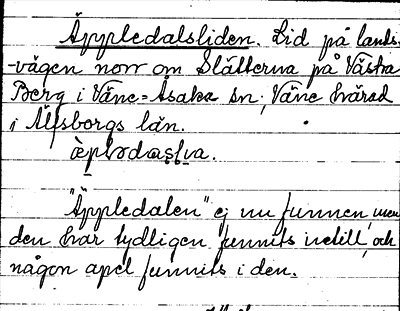 Äppledalsliden. Lid på lands-
-vägen norr om Slätterna på Västra
Berg i Väne-Åsaka sn, Väne härad
i Älfsborgs län.
"Äppledalen" ej nu funnen, men
den har tydligen funnits intill, och
någon apel funnits i den.